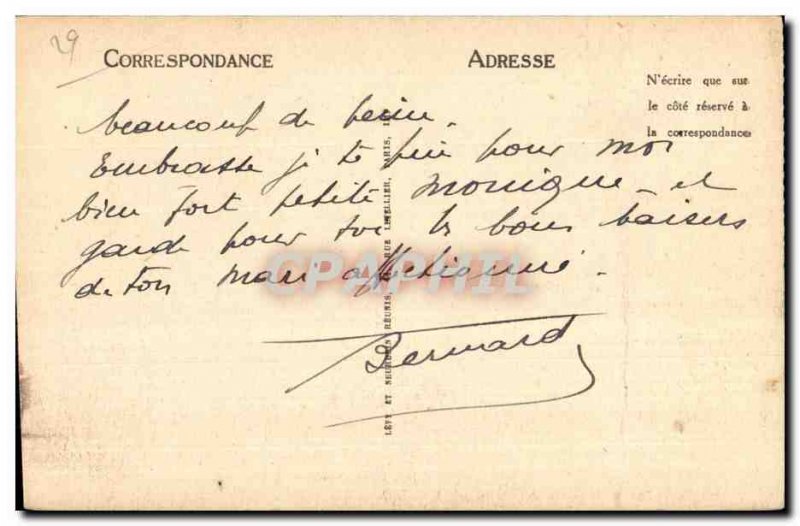 29
CORRESPONDANCE
ADRESSE
N'écrire que sur
le côté réservé à
la correspondance
beaucoup de peine.
Embrasse je te prie pour moi
bien fort petite Monique et
garde pour toi les bons baisers
de ton mari affectionné.
Bernard
LÉVY ET NEURDEIN RÉUNIS, RUE LETELLIER, PARIS, I
CPAPHIL